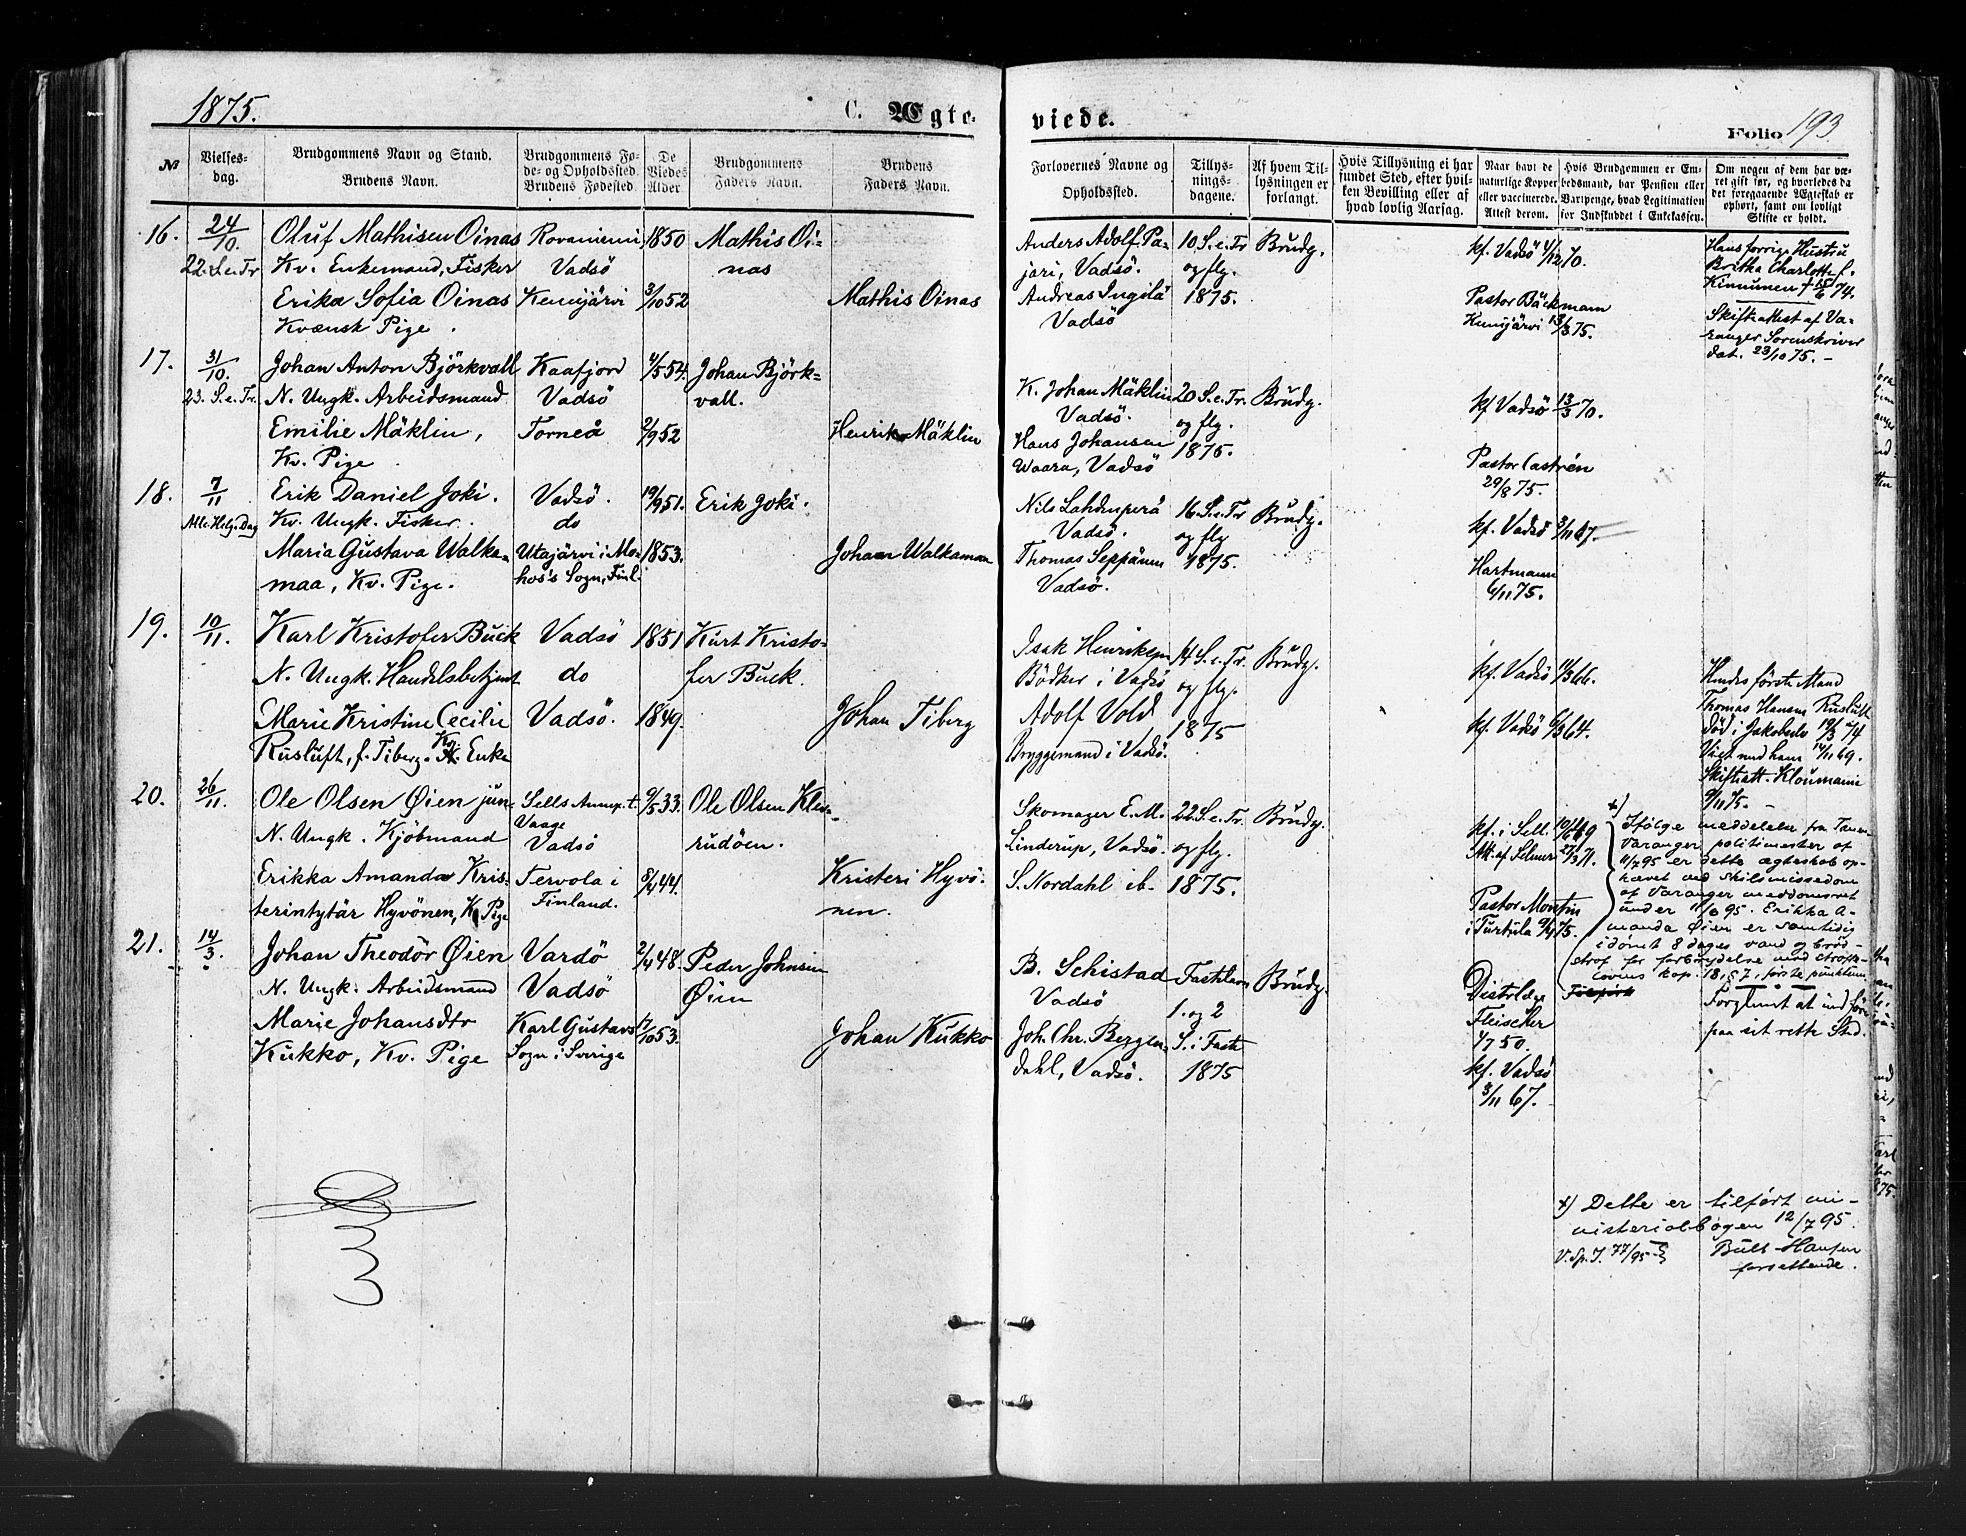 1875.
C. Ægte-
viede.
Folio 193
№
Vielses-
dag.
Brudgommens Navn og Stand.
Brudens Navn.
Brudgommens Fø-
de- og Opholdssted.
Brudens Fødested.
De
Viedes
Alder.
Brudgommens
Faders Navn.
Brudens
Faders Navn.
Forlovernes Navne og
Opholdssted.
Tillys-
nings-
dagene.
Af hvem Til-
lysningen er
forlangt.
Hvis Tillysning ei har
fundet Sted, efter hvil-
ken Bevilling eller af
hvad lovlig Aarsag.
Naar havt de
naturlige Kopper
eller vaccinerede.
Attest derom.
Hvis Brudgommen er Em-
bedsmand, har Pension eller
Vartpenge, hvad Legitimation
for Indskuddet i Enkekassen.
Om nogen af dem har væ-
ret gift før, og hvorledes da
det foregaaende Ægteskab er
ophørt, samt om lovligt
Skifte er holdt.
16.
24/10.
22. S. e. Tr.
Oluf Mathisen Oinas
Kv. Enkemand, Fisker
Erika Sofia Oinas
Kvænsk Pige.
Rovaniemi
Vadsö
Kemijärvi
1850
3/10 52
Mathis Oi-
nas
Mathis Oinas
Anders Adolf Pa-
jari, Vadsö.
Andreas Ingilä
Vadsö
10 S. e. Tr
og flg.
1875.
Brudg.
kf. Vadsö 4/12 70.
Pastor Bäckmann
Kemijärvi 13/3 75.
Hans forrige Hustru
Britha Charlotte f.
Kinnunen † 15/6 74.
Skifteattest af Va-
ranger Sorenskriver
dat. 23/10 75. -
17.
31/10.
23. S. e. Tr.
Johan Anton Björkvall
N. Ungk. Arbeidsmand
Emilie Mäklin,
Kv. Pige.
Kaafjord
Vadsö
Torneå
4/5 54.
2/9 52
Johan Björk-
vall.
Henrik Mäklin
K. Johan Mäklin
Vadsö.
Hans Johansen
Waara, Vadsö
20 S. e. Tr.
og flg.
1875.
Brudg.
kf Vadsö 13/3 70.
Pastor Castrén
29/8 75.
18.
7/11
Alle Helg. Dag
Erik Daniel Joki.
Kv. Ungk. Fisker.
Maria Gustava Walka-
maa, Kv. Pige.
Vadsö.
do
Utajärvi i Mo-
hos's Sogn, Finl.
19/9 51.
1853.
Erik Joki.
Johan Walkamaa
Nils Lahdenperä
Vadsö.
Thomas Seppänen
Vadsö.
16. S. e. Tr
og flg
1875.
Brudg.
kf. Vadsö 3/11 67.
Hartmann
6/11 75.
19.
10/11.
Karl Kristofer Buck
N. Ungk. Handelsbetjent
Marie Kristine Cecilie
Rusluft, f. Tiberg. Kv. Enke
Vadsö
do
Vadsö.
1851
1849.
Kurt Kristo-
fer Buck.
Johan Tiberg
Isak Henriksen
Bödker i Vadsö
Adolf Vold
Bryggemand i Vadsö.
14 S. e. Tr.
og flg.
1875
Brudg.
kf. Vadsö 11/3 66.
kf. Vadsö 6/3 64.
Hendes förste Mand
Thomas Hansen Rusluft
död i Jakobselv 19/3 74
Viet med ham 14/11 69.
Skifteatt. Kloumann
9/11 75. -
20.
26/11.
Ole Olsen Øien jun.
N. Ungk. Kjöbmand
Erikka Amanda Kris-
terintytär Hyvönen, K. Pige
Sells Annex t.
Vaage
Vadsö
Tervola i
Finland.
9/5 33.
8/4 44.
Ole Olsen Kle-
rudöen.
Kristeri Hyvö-
nen.
Skomager E. M.
Linderup, Vadsö.
S. Nordahl ib.
22 S. e. Tr.
og flg.
1875.
Brudg.
kf. i Sell. 10/6 49
Att. af Selmer 27/3 71.
Pastor Montin
i Turtula 9/4 75.
x) Ifølge meddelelse fra Tanen-
Varanger politimester af
11/7 95 er dette ægteskab op-
hævet ved skilsmissedom
af Varanger meddomsret
under 11/6 95. Erikka A-
manda Øien er samtidig
idømt 8 dages vand og brød-
straf for forbrydelse mod straffe-
lovens kap. 18, § 7, første punktum.
21.
14/3.
Johan Theodor Øien
N. Ungk. Arbeidsmand
Marie Johansdtr
Kukko, Kv. Pige
Vardö
Vadsö
Karl Gustavs
Sogn i Sverige
2/4 48.
17/10 53.
Peder Johnsen
Øien
Johan Kukko
B. Schistad
Vadsö
Joh. Chr. Bergen-
dahl, Vadsö.
Fastelavn
1. og 2
S. i Faste
1875
Brudg.
Distrlæge
Fleischer
4/7 50.
kf. Vadsö
3/11 67.
Forglemt at indföre
paa sit rette Sted.
x) Dette er tilført mi-
nisterialbogen 12/7 95.
V. Sp. J. 77/95
Bull-Hansen